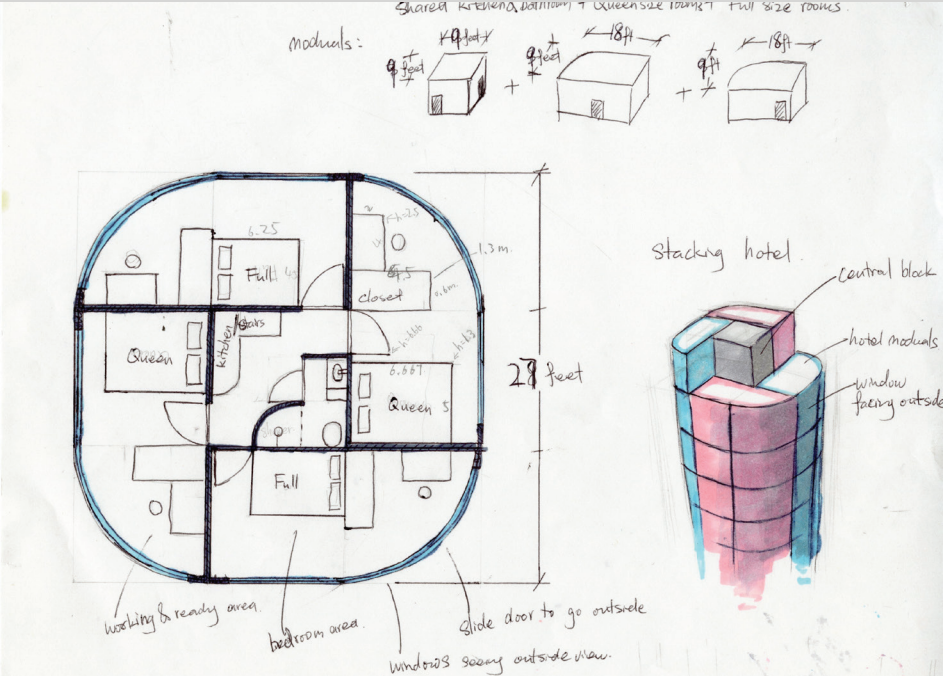 Shared Kitchen & bathroom + Queen size rooms + Full size rooms.
moduals:
9 feet
9 feet
+
9 feet
18ft
+
9ft
18ft
6.25
Full
h:0.25
1.3 m.
closet
0.6m.
stairs
kitchen
Queen
6.667
Queen 5
Full
27 feet
working & ready area.
bedroom area.
slide door to go outside
windows seeing outside view.
Stacking hotel.
central block
hotel moduals
window
facing outside